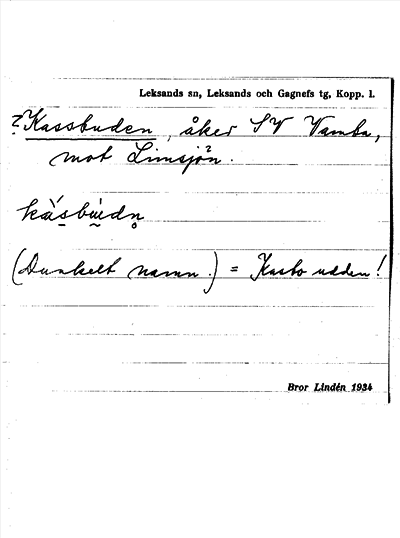 Leksands sn, Leksands och Gagnefs tg, Kopp. l.
?Kassbuden, åker SV Vamba,
mot Limsjön.
kàsbúdn
(Dunkelt namn.) = Kasto udden!
Bror Lindén 1934